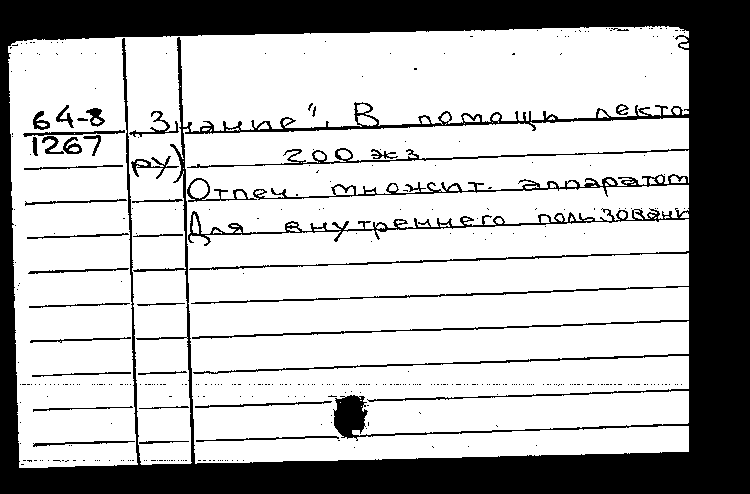 2
64-8
1267
„Знание". В помощь лекто-
ру). 200 экз.
Отпеч. множит. аппаратом
Для внутреннего пользовани